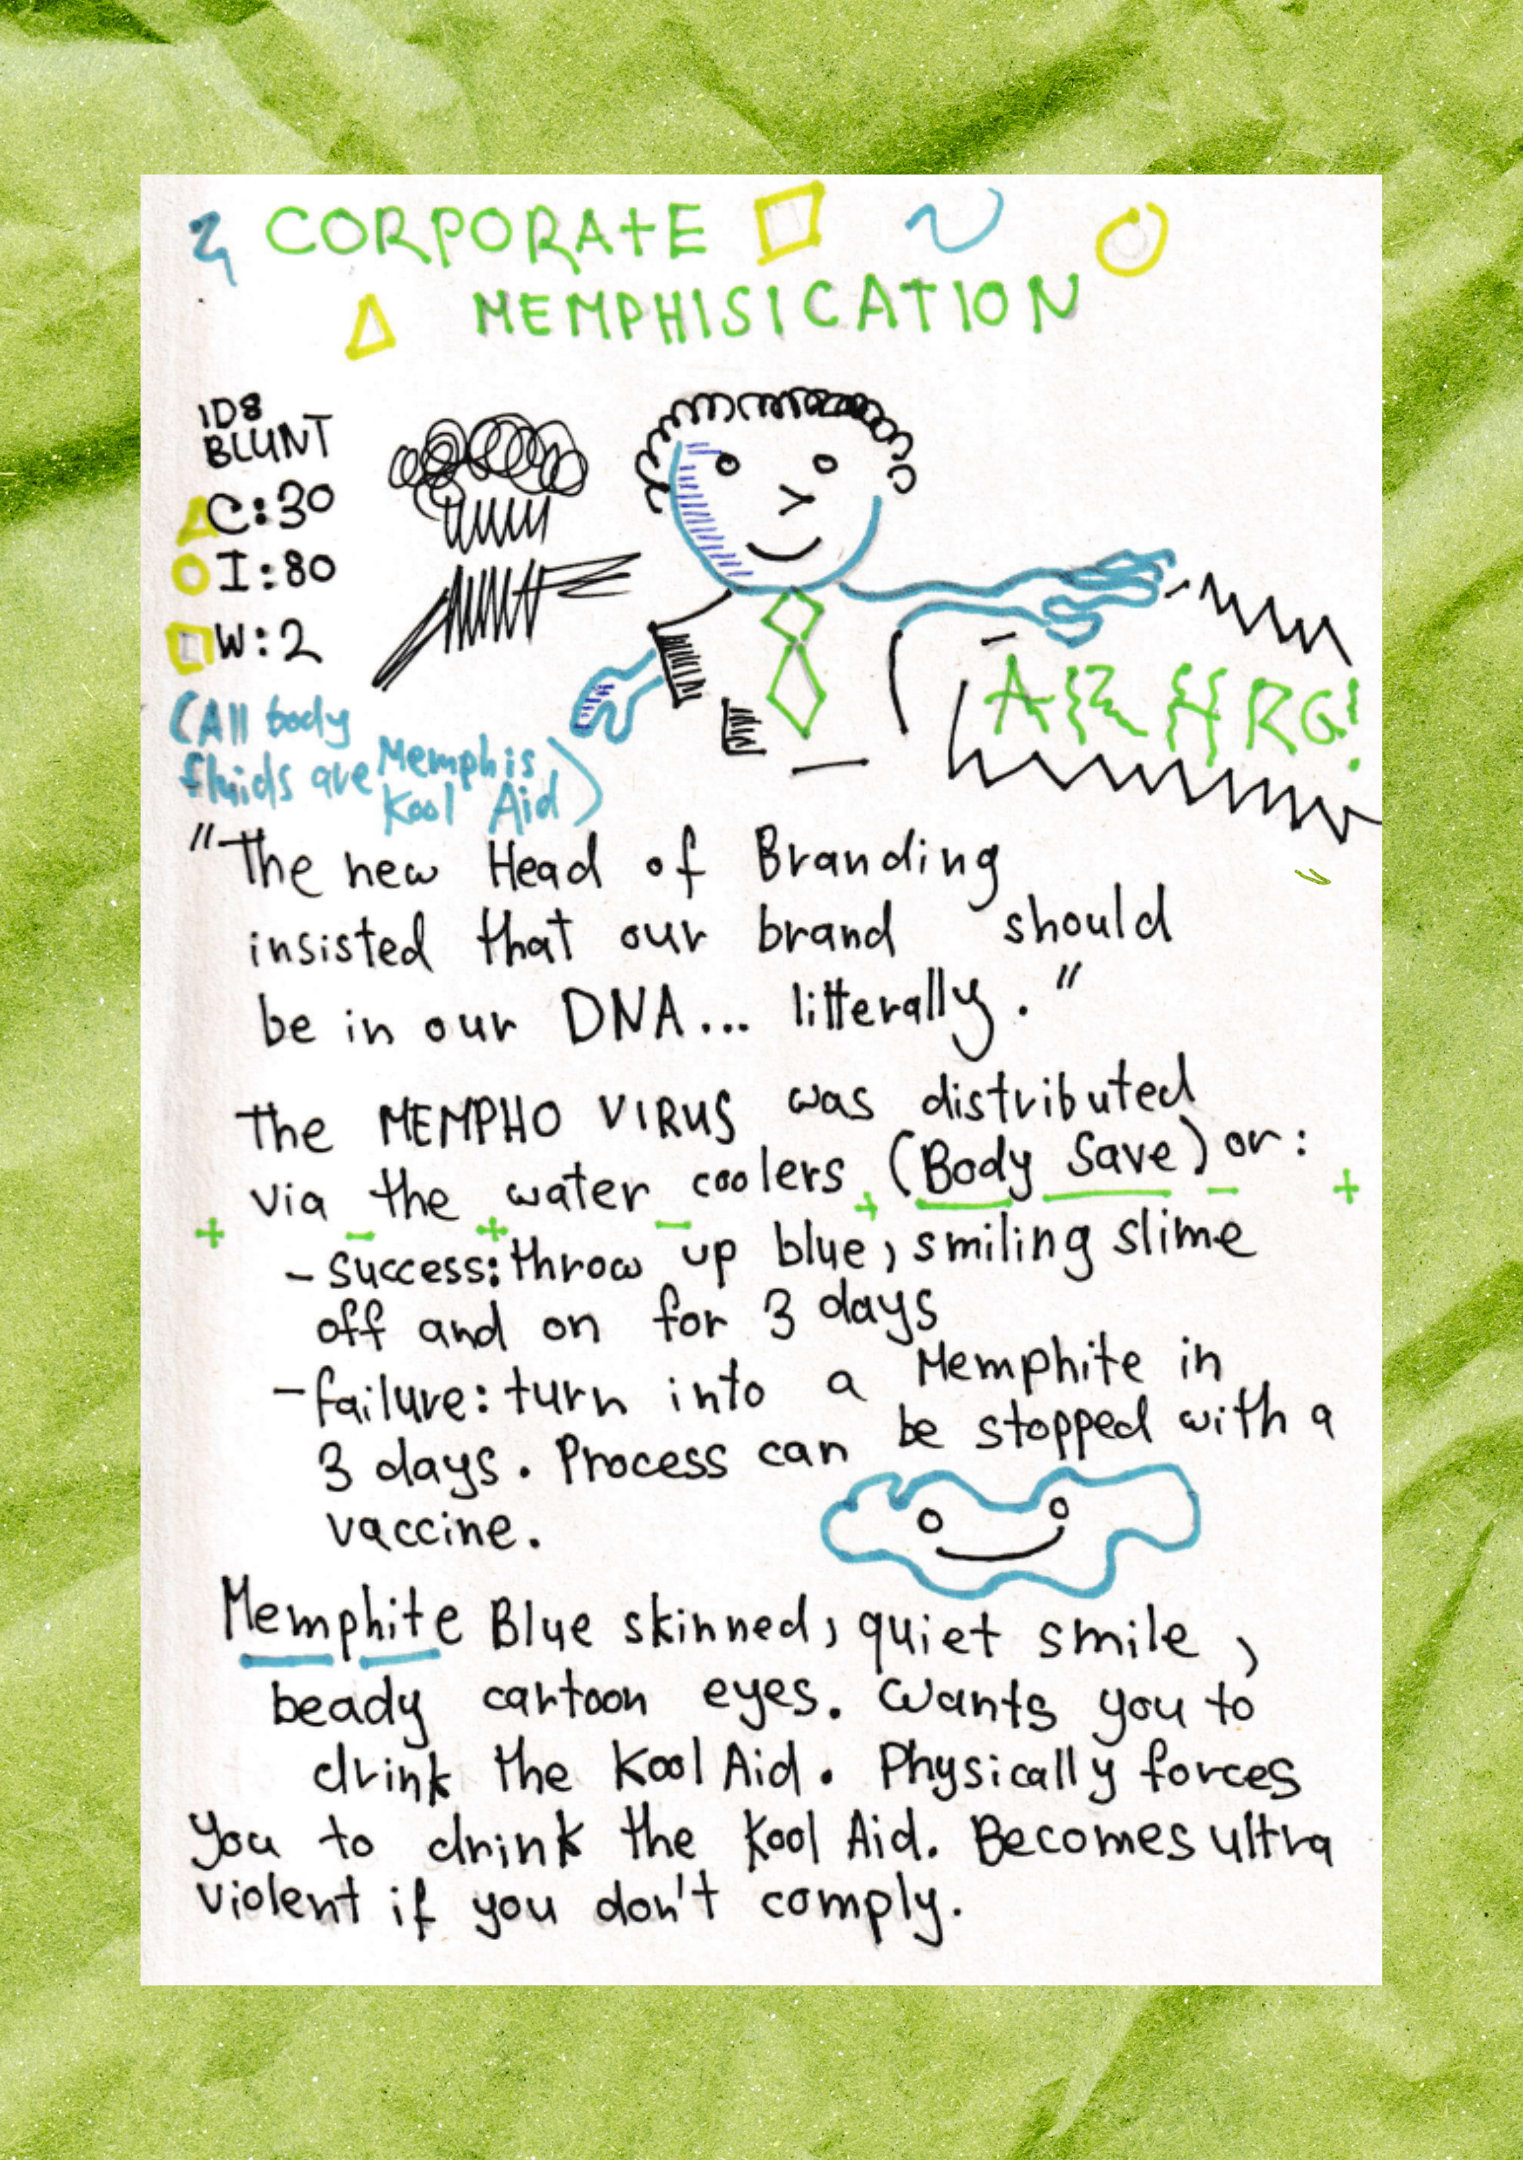 CORPORATE
MEMPHISICATION
1D8
BLUNT
C:30
I:80
W:2
(All body
fluids are Memphis
Kool Aid)
ARHRG!
"The new Head of Branding
insisted that our brand should
be in our DNA... litterally."
The MEMPHO VIRUS was distributed
via the water coolers (Body Save) or:
- Success: throw up blue, smiling slime
off and on for 3 days
- failure: turn into a Memphite in
3 days. Process can be stopped with a
vaccine.
Memphite Blue skinned, quiet smile,
beady cartoon eyes. Wants you to
drink the Kool Aid. Physically forces
you to drink the Kool Aid. Becomes ultra
violent if you don't comply.